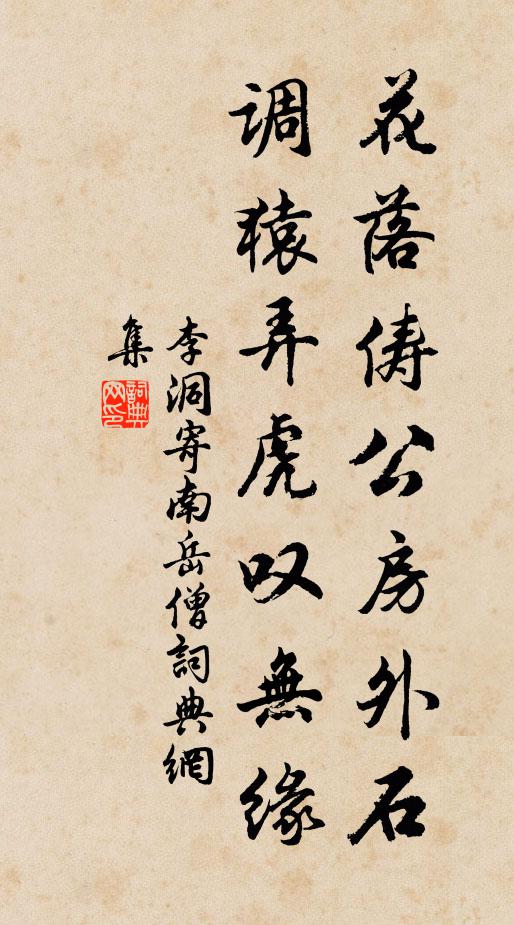 花落俦公房外石
调猿弄虎叹無緣
李洞寄南岳僧詞典網
集
詞典
网印